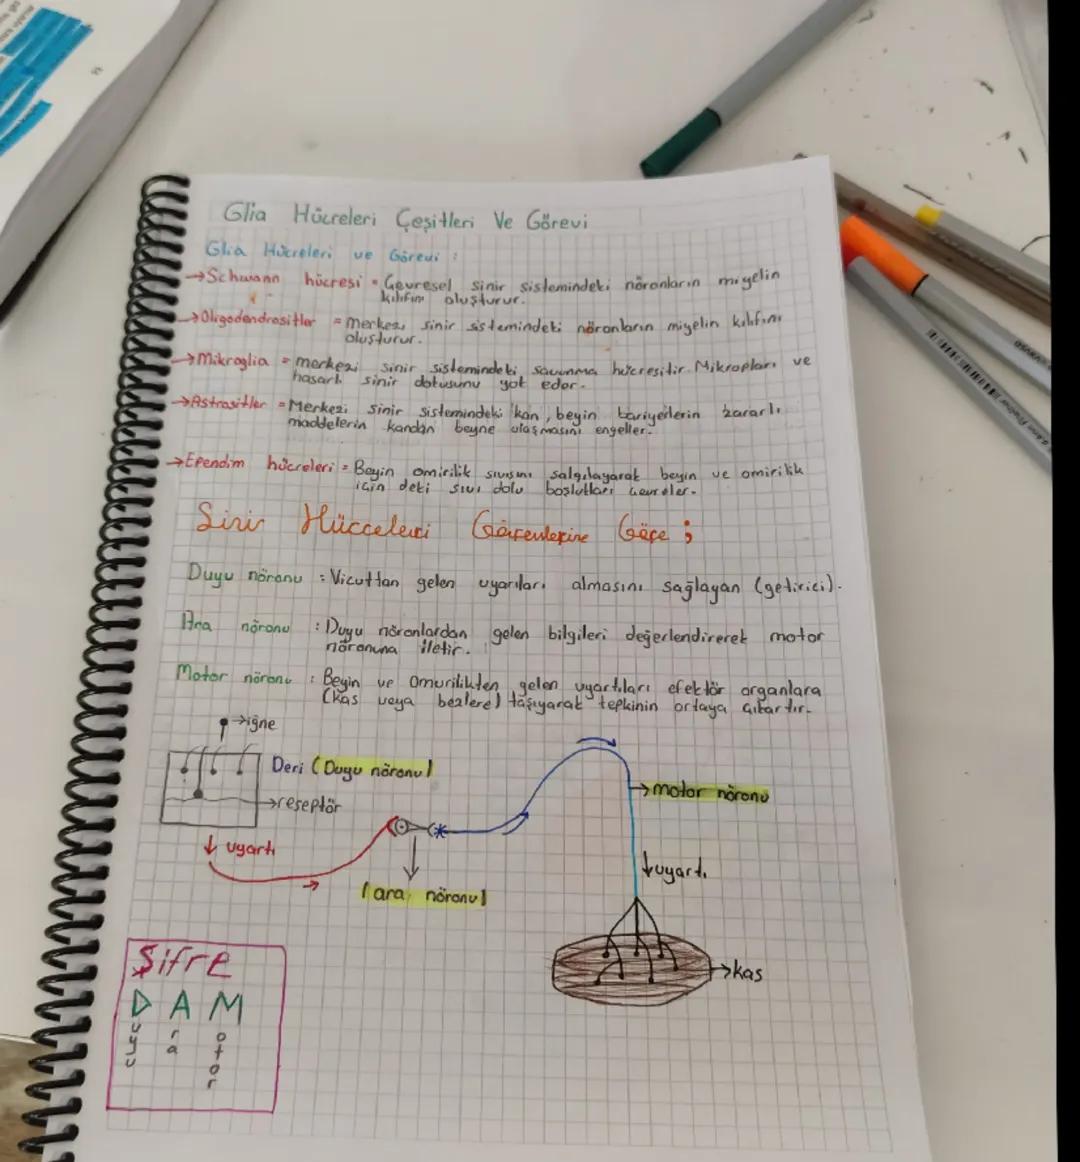 Glia Hücreleri Çeşitleri Ve Görevi
Glia Hücreleri ve Görevi :
→Schwann hücresi = Çevresel sinir sistemindeki nöronların miyelin
kılıfını oluşturur.
→Oligodendrositler = merkezi sinir sistemindeki nöronların miyelin kılıfını
oluşturur.
→Mikroglia = merkezi sinir sistemindeki savunma hücresidir. Mikropları ve
hasarlı sinir dokusunu yok eder.
→Astrositler = Merkezi sinir sistemindeki kan, beyin bariyerlerin zararlı
maddelerin kandan beyne ulaşmasını engeller.
→Ependim hücreleri = Beyin omirilik sıvısını salgılayarak beyin ve omirilik
için deki sıvı dolu boşlukları çevreler.
Sinir Hücreleri Görevlerine Göre ;
Duyu nöronu : Vücuttan gelen uyarıları almasını sağlayan (getirici).
Ara nöronu : Duyu nöronlardan gelen bilgileri değerlendirerek motor
nöronuna iletir.
Motor nöronu : Beyin ve Omurilikten gelen uyartıları efektör organlara
(kas veya bezlere) taşıyarak tepkinin ortaya çıkartır.
→iğne
Deri (Duyu nöronu)
→reseptör
↓ uyartı
(ara nöronu)
→motor nöronu
↓uyartı
→kas
Şifre
D A M
uyu
ra
otor